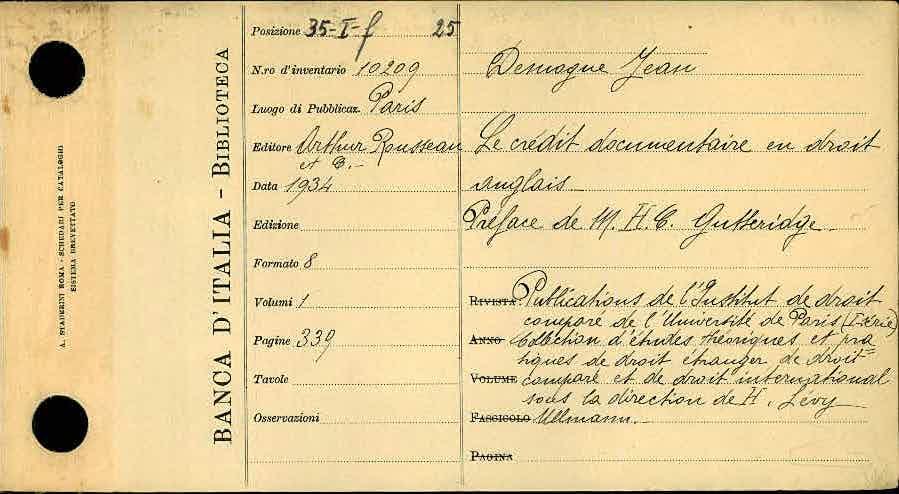 A. STADERINI ROMA - SCHEDARI PER CATALOGHI
SISTEMA BREVETTATO
BANCA D'ITALIA - BIBLIOTECA
Posizione 35-I-f 25
N.ro d'inventario 10209
Luogo di Pubblicaz. Paris
Editore Arthur Rousseau
et C.-
Data 1934
Edizione
Formato 8
Volumi 1
Pagine 339
Tavole
Osservazioni
Demogue Jean
Le crédit documentaire en droit
anglais
Préface de M. H. C. Gutteridge
RIVISTA Publications de l'Institut de droit
comparé de l'Université de Paris (I série)
ANNO Collection d'études théoriques et pra
tiques de droit étranger de droit=
VOLUME comparé et de droit international
sous la direction de H. Lévy
FASCICOLO Ullmann.
PAGINA